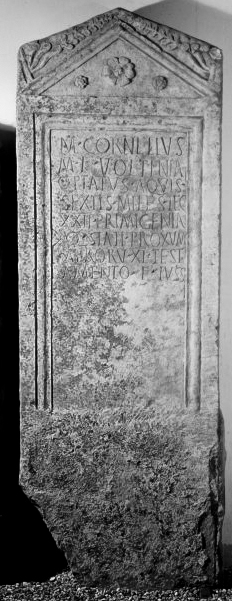 M CORNELIVS
M F VOLTINIA
OPTATVS AQVIS
SEXTIS MILES LEG
XXII PRIMIGENIA
STATI PROXVM
TEST
AMENTO F IVSS